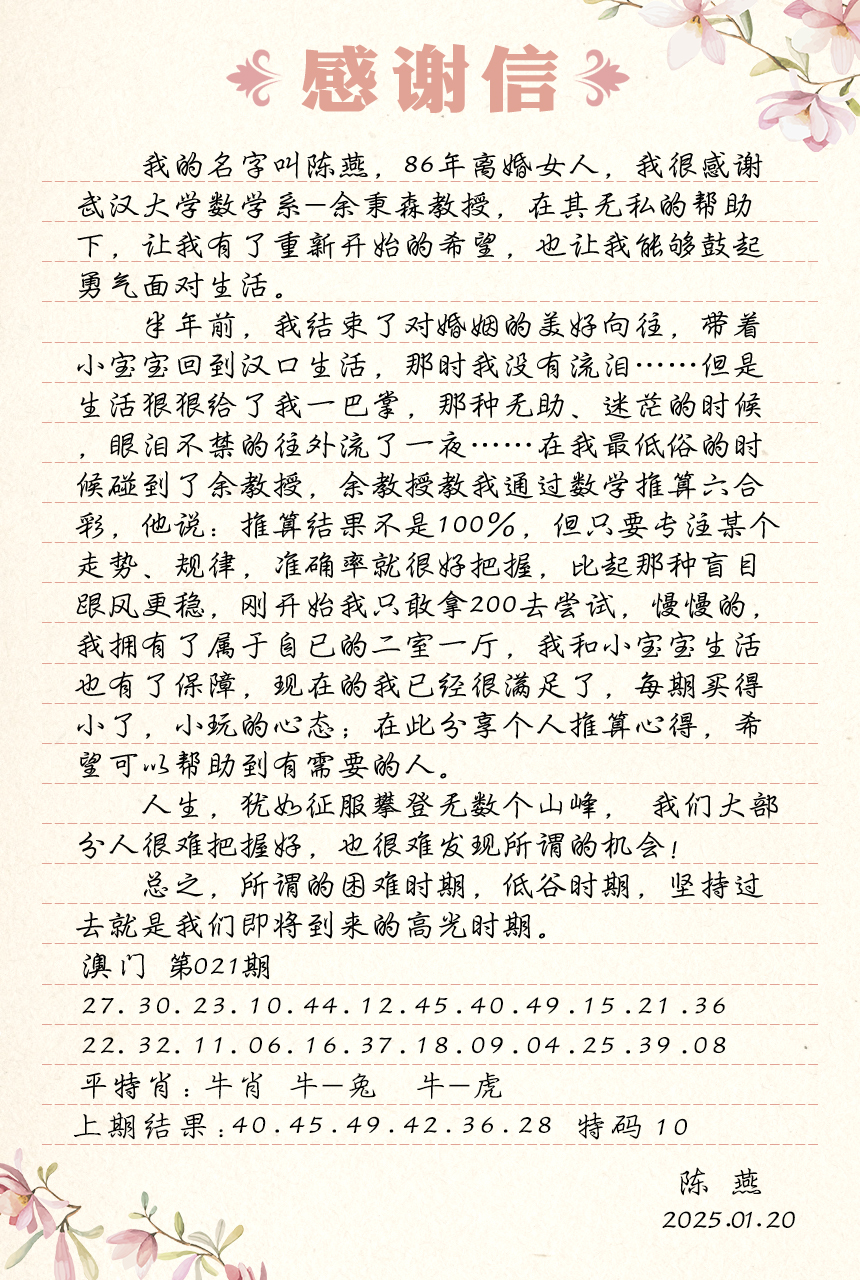 感谢信
我的名字叫陈燕，86年离婚女人，我很感谢
武汉大学数学系—余秉森教授，在其无私的帮助
下，让我有了重新开始的希望，也让我能够鼓起
勇气面对生活。
半年前，我结束了对婚姻的美好向往，带着
小宝宝回到汉口生活，那时我没有流泪……但是
生活狠狠给了我一巴掌，那种无助、迷茫的时候
，眼泪不禁的往外流了一夜……在我最低俗的时
候碰到了余教授，余教授教我通过数学推算六合
彩，他说：推算结果不是100%，但只要专注某个
走势、规律，准确率就很好把握，比起那种盲目
跟风更稳，刚开始我只敢拿200去尝试，慢慢的，
我拥有了属于自已的二室一厅，我和小宝宝生活
也有了保障，现在的我已经很满足了，每期买得
小了，小玩的心态；在此分享个人推算心得，希
望可以帮助到有需要的人。
人生，犹如征服攀登无数个山峰， 我们大部
分人很难把握好，也很难发现所谓的机会！
总之，所谓的困难时期，低谷时期，坚持过
去就是我们即将到来的高光时期。
澳门 第021期
27.30.23.10.44.12.45.40.49.15.21.36
22.32.11.06.16.37.18.09.04.25.39.08
平特肖：牛肖 牛—兔 牛—虎
上期结果：40.45.49.42.36.28 特码 10
陈 燕
2025.01.20